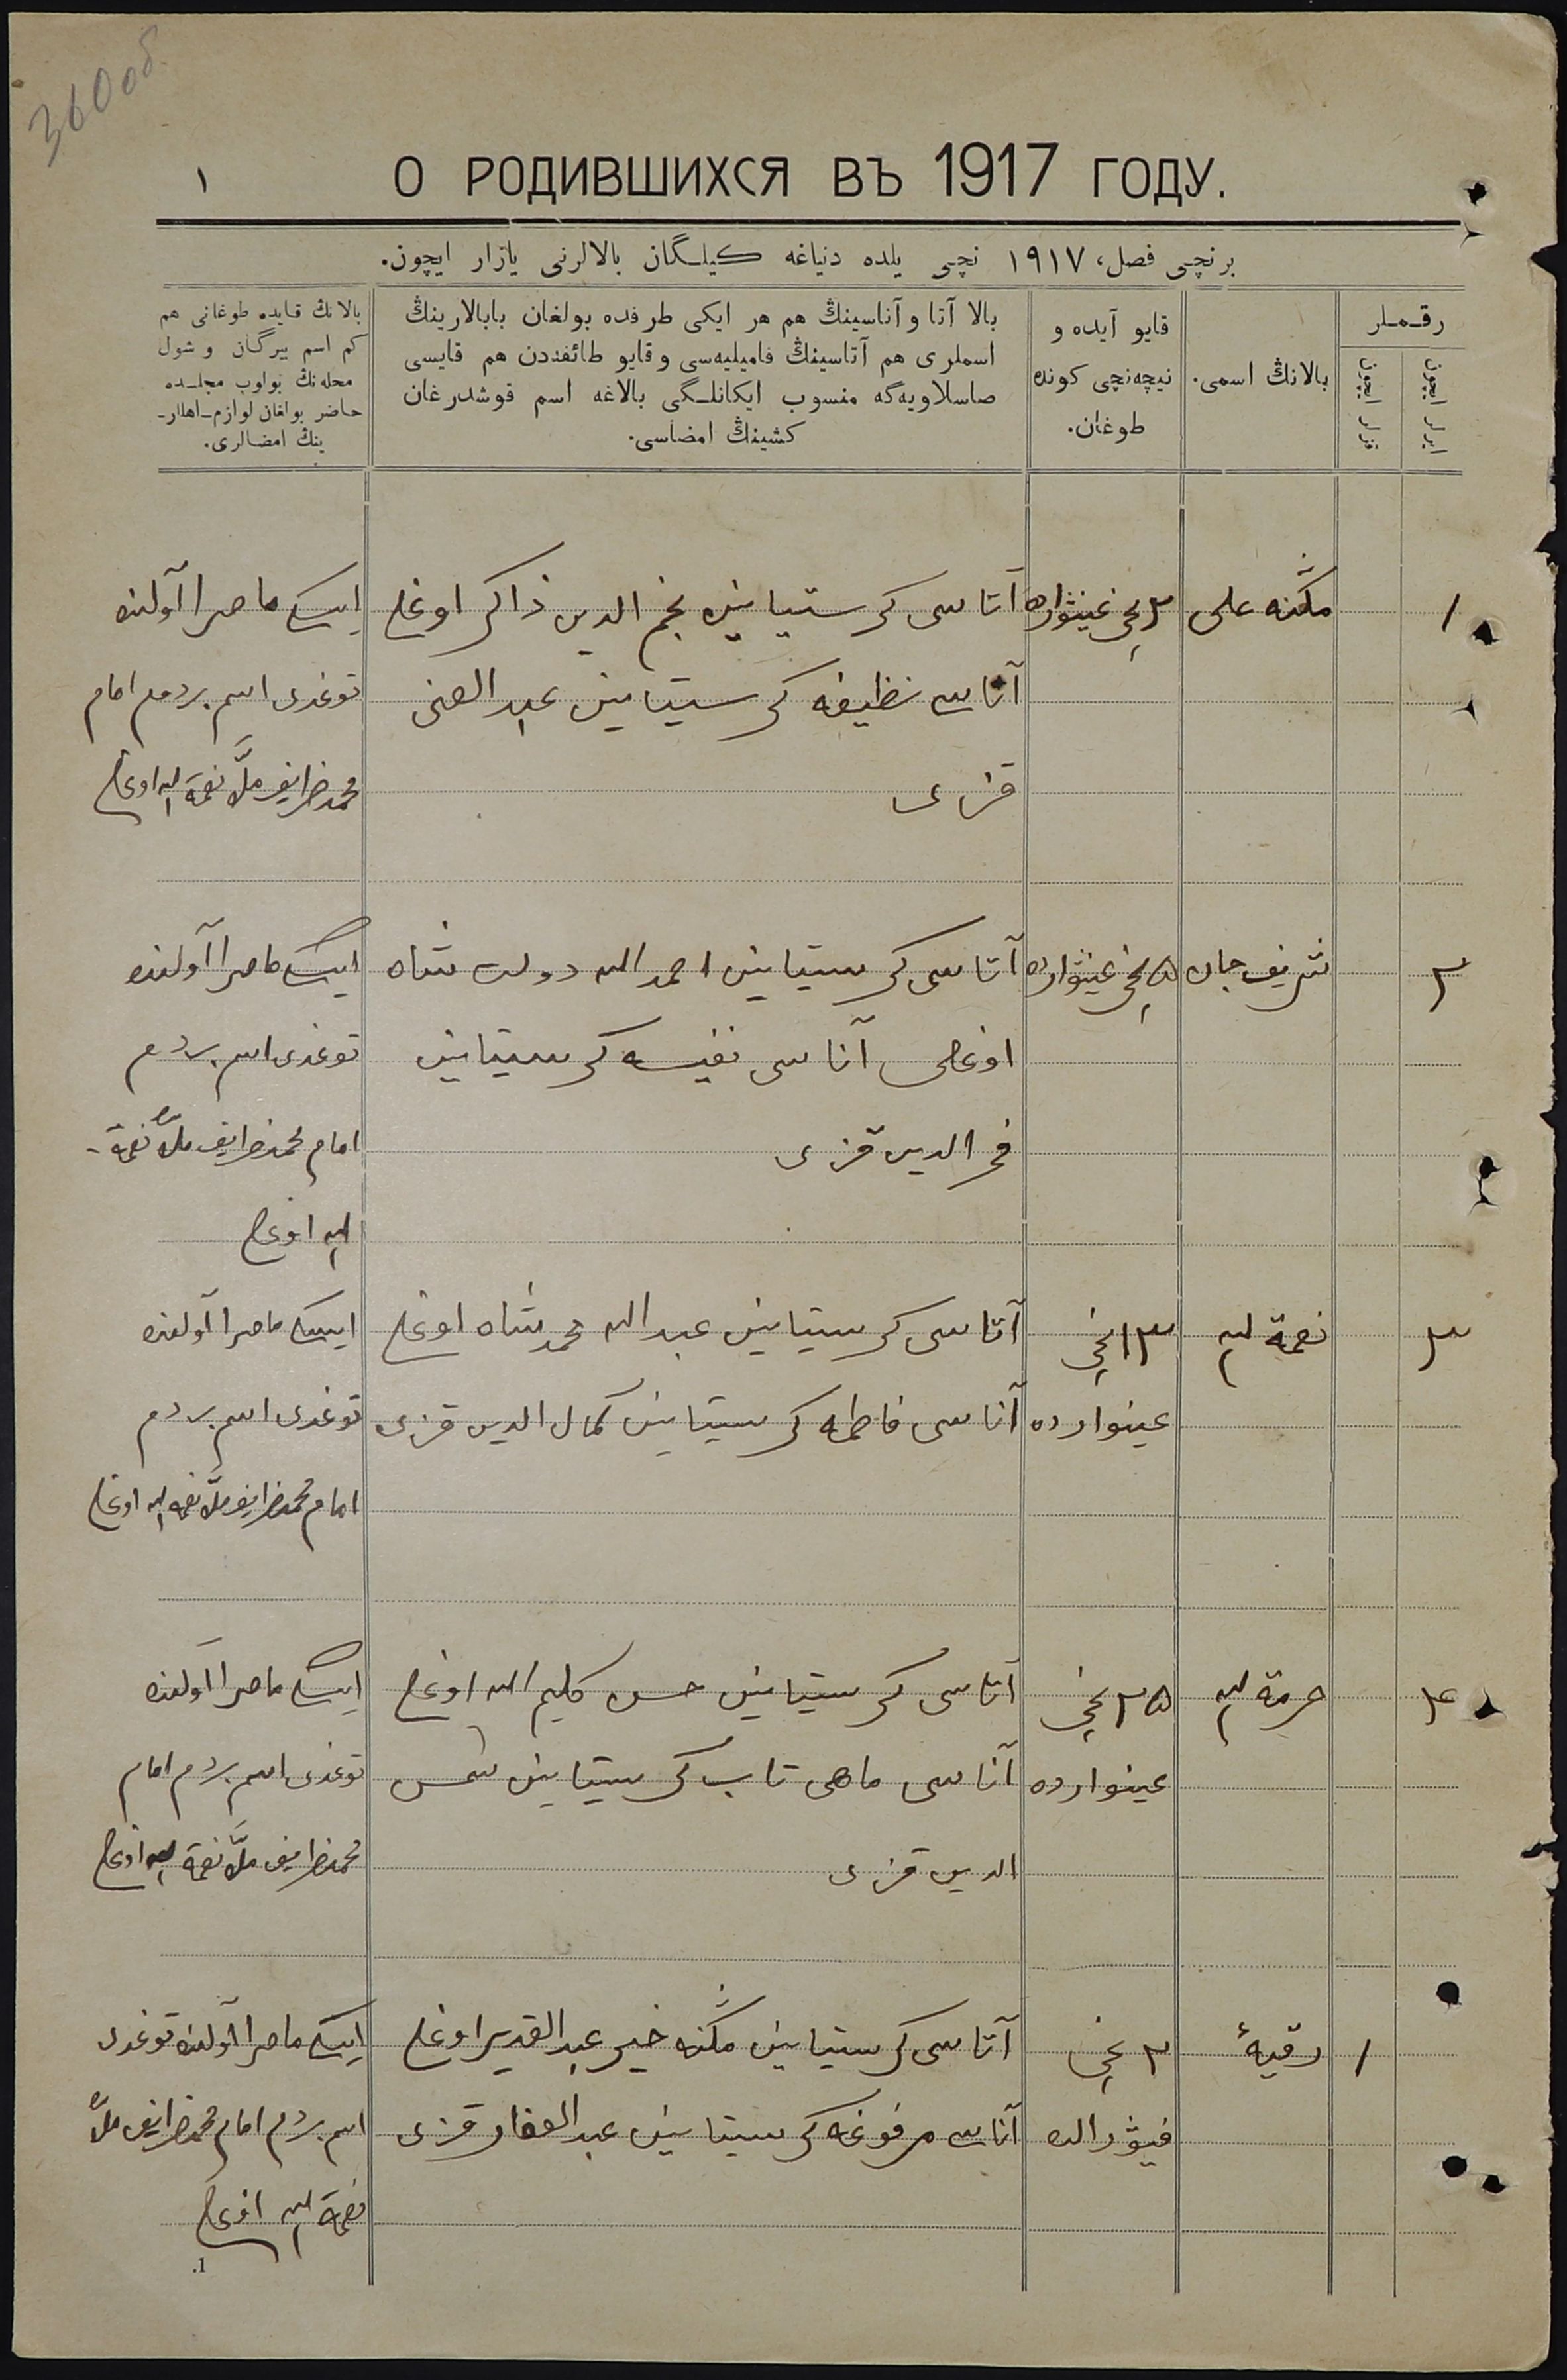 360 об
О РОДИВШИХСЯ ВЪ 1917 ГОДУ.
١
برنچی فصل، ١٩١٧ نچی یلده دنیاغه کیلگان بالالرنی یازار ایچون.
رقملر
ایرلر ایچون
قزلر ایچون
بالانڭ اسمی.
قایو آیده و
نیچه‌نچی کونده
طوغان.
بالا آتا و آناسینڭ هم هر ایکی طرفده بولغان بابالارینڭ
اسملری هم آتاسینڭ فامیلیه‌سی و قایو طائفه‌دن هم قایسی
صاسلاویه‌گه منسوب ایکانلگی بالاغه اسم قوشدرغان
کشینڭ امضاسی.
بالانڭ قایده طوغانی هم
کم اسم بیرگان و شول
محله‌نڭ بولوب مجلسده
حاضر بولغان لوازم اهللر-
ینڭ امضالری.
١
علی
آتاسی کرستیانین نجم الدین ذاکر اوغلی
آناسی نظیفه کرستیانین عبد الغنی
قزی
توغدی اسم بردم امام
ملّا نعمة الله اوغلی
٢
شریف جان
٥ نچی غینوارده
آتاسی کرستیانین احمد الله دولت شاه
اوغلی آناسی نفیسه کرستیانین
فخر الدین قزی
توغدی اسم بردم
امام ملّا نعمة
الله اوغلی
٣
نعمة الله
١٣ نچی
غینوارده
آتاسی کرستیانین عبد الله محمد شاه اوغلی
آناسی فاطمه کرستیانین کمال الدین قزی
توغدی اسم بردم
امام ملّا نعمة الله اوغلی
٤
حرمة الله
٢٥ نچی
غینوارده
آتاسی کرستیانین حسن کلیم الله اوغلی
آناسی ماهی تاب کرستیانین شمس
الدین قزی
توغدی اسم بردم امام
ملّا نعمة الله اوغلی
١
رقیهٔ
٢ نچی
فیورالده
آتاسی کرستیانین خیر عبد القدیر اوغلی
آناسی مرفوغه کرستیانین عبد الغفار قزی
توغدی
اسم بردم امام ملّا
نعمة الله اوغلی
1.